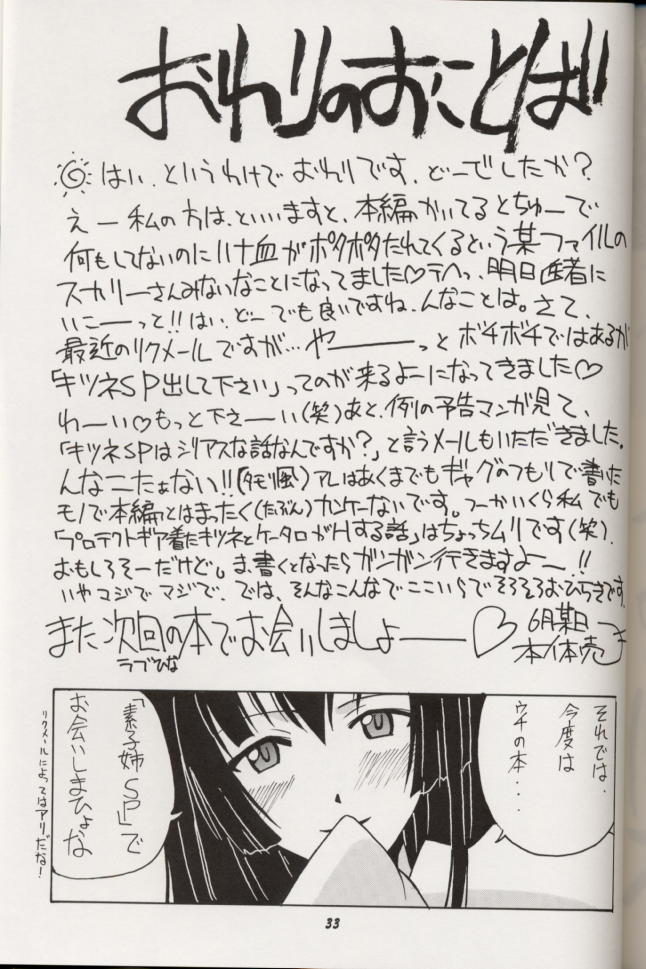 おわりのおことば
はい、というわけでおわりです、どーでしたか?
えー私の方は、といいますと、本編かいてるとちゅーで
何もしてないのにハナ血がポタポタたれてくるという某ファイルの
スカリーさんみないなことになってました♡テヘっ、明日医者に
いこーーっと!!はい、どーでも良いですね、んなことは。さて、
最近のリクメールですが…やーーーっとボチボチではあるが
「キツネSP出して下さい」ってのが来るよーになってきました♡
わーい♡もっと下さーい(笑)あと、例の予告マンガ見て、
「キツネSPはシリアスな話なんですか?」と言うメールもいただきました。
んなこたぁない!!(タモリ風)アレはあくまでもギャグのつもりで書いた
モノで本編とはまったく(たぶん)カンケーないです。つーかいくら私でも
「プロテクトギア着たキツネとケータロがHする話」はちょっちムリです(笑)。
おもしろそーだけど。ま、書くとなったらガンガン行きますよー!!
いやマジでマジで。では、そんなこんなでここいらでそろそろおひらきです。
また次回の本でお会いしましょーー♡
ラブひな
6月某日
本体売
それでは、
今度は
ウチの本・・・
「素子姉SP」で
お会いしまひょな
リクメールによってはアリだな!
33